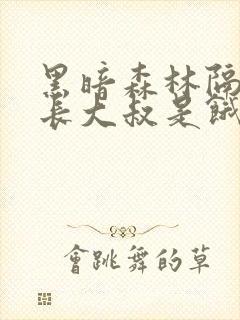 黑暗森林隔
長大叔是餓
會跳舞的草